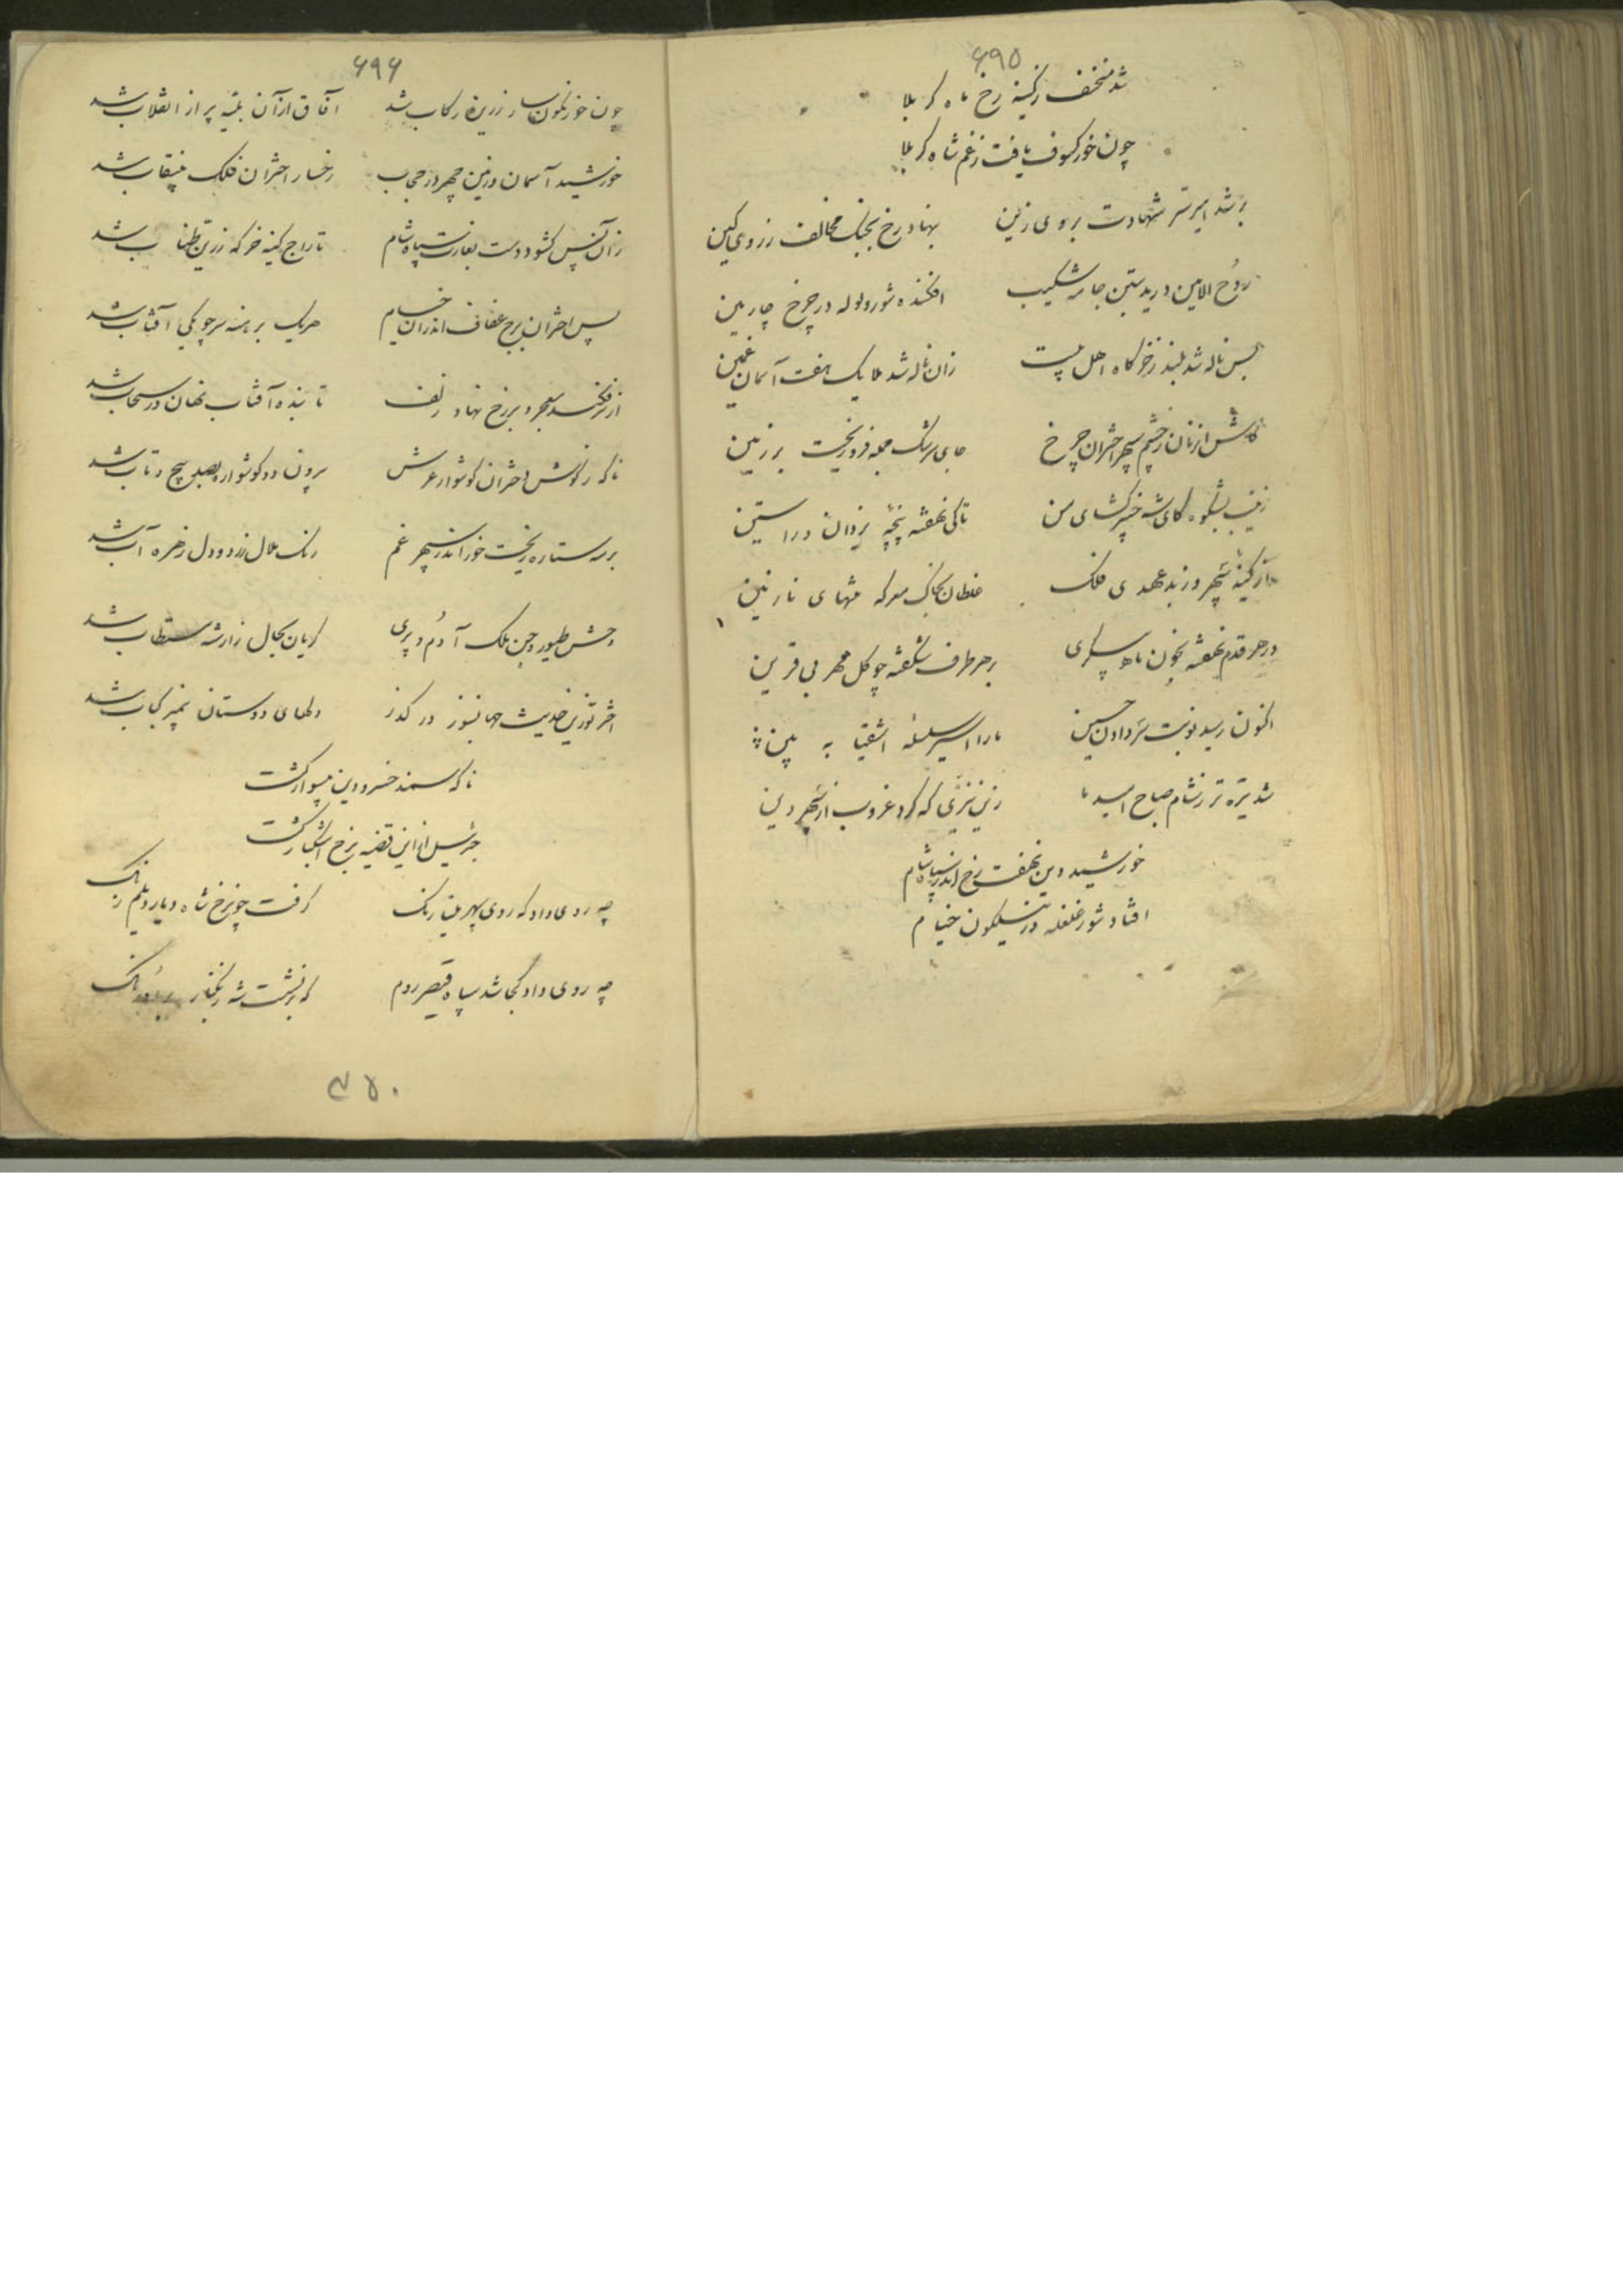 ۶۹۵
شد منخسف ز کینه رخ ماه کربلا
چون خور کسوف یافت ز غم شاه کربلا
بر شد امیر شهادت بروی زین بنهاد رخ بجنگ مخالف ز روی کین
روح الامین درید بتن جامه شکیب افکنده شور و لوله در چرخ چارمین
بس ناله شد بلند ز خرگاه اهل بیت زان ناله شد ملایک هفت آسمان غمین
از چشم سپهر اختران چرخ جای سرشک جمله فرو ریخت بر زمین
زینب بشکوه کای شه خیبر گشای من تا کی نهفته پنجه یزدان در استین
از کینه سپهر و ز بد عهدی فلک غلطان بخاک معرکه تنهای نازنین
در هر قدم نهفته بخون ماه پیکری بر هر طرف شکفته چو گل مهر بی قرین
اکنون رسید نوبت سر دادن حسین ما را اسیر سلسله اشقیا به بین
شد تیره تر ز شام صباح امید ما زین نیری که کرد غروب از سپهر دین
خورشید دین نهفت رخ اندر سپاه شام
افتاد شور غلغله در نیلگون خیام
۶۹۶
چون خور نگون ز زرینه رکاب شد آفاق از آن بلیه پر از انقلاب شد
خورشید آسمان و زمین چهر در حجاب رخسار اختران فلک بینقاب شد
زان پس گشود دست بغارت سپاه شام تاراج کینه خرگه زرین طناب شد
پس اختران برج عفاف اندر آن خیام هر یک برهنه سر چو یکی آفتاب شد
از سر فکند معجر و بر رخ نهاد زلف تابنده آفتاب نهان در سحاب شد
ناگه ز گوش دختران گوشوار عرش برون دو گوشواره بصد پیچ و تاب شد
بر مه ستاره ریخت خور اندر سپهر غم رنگ هلال زرد و دل زهره آب شد
وحش و طیور و جن و ملک آدم و پری گریان بحال زار شه مستطاب شد
اختر تو زین حدیث جهانسوز در گذر دلهای دوستان کباب شد
ناگه سمند خسرو دین بیسوار گشت
جبریل از این قضیه برخ اشکبار گشت
چه روی داد که روی سپهر رنگ گرفت چو برخ شاه دیار دیلم رنگ
چه روی داد کجا شد سپاه قیصر روم که بر نشست شه زنگبار بر اورنگ
۳۵۰